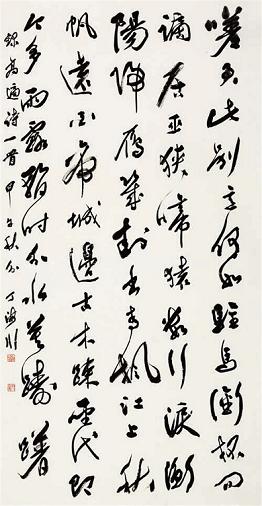 嗟君此別意何如駐馬銜杯問
謫居巫峽啼猿數行淚衡
陽歸雁幾封書青楓江上秋
帆遠白帝城邊古木疎聖代即
今多雨露暫時分手莫躊躇
錄高適詩一首甲午秋